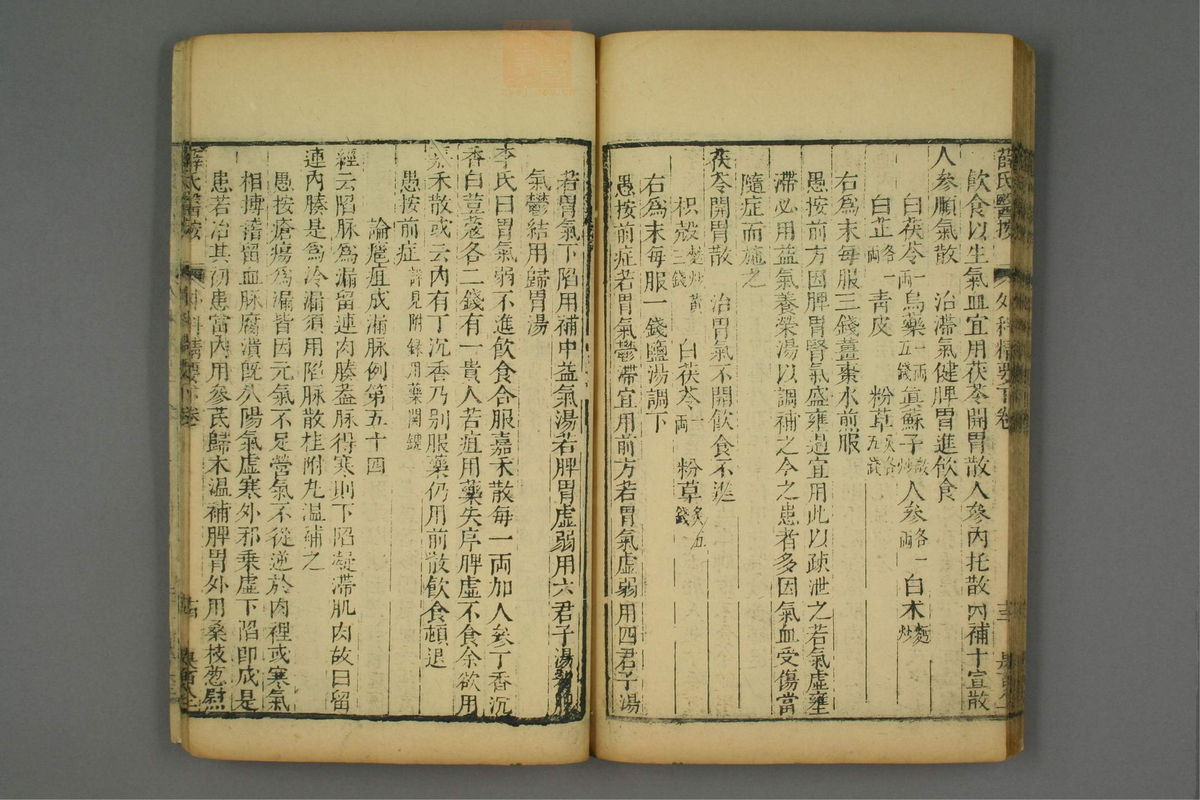 薛氏醫按 外科精要下卷
飲食以生氣血宜用茯苓開胃散人參內托散內補十宣散
人參順氣散 治滯氣健脾胃進飲食
白茯苓一兩烏藥一兩五錢真蘇子微炒人參各一兩白术麵炒
白芷各一兩 青皮 粉草炙各五錢
右為末每服三錢薑棗水煎服
愚按前方因脾胃腎氣盛壅過宜用此以疎泄之若氣虛壅
滯必用益氣養榮湯以調補之今之患者多因氣血受傷當
隨症而施之
茯苓開胃散 治胃氣不開飲食不進
枳殼麩炒黃三錢 白茯苓一兩 粉草炙五錢
右為末每服一錢鹽湯調下
愚按前症若胃氣鬱滯宜用前方若胃氣虛弱用四君子湯
若胃氣下陷用補中益氣湯若脾胃虛弱用六君子湯
氣鬱結用歸脾湯
李氏曰胃氣弱不進飲食合服嘉禾散每一兩加人參丁香沉
香白荳蔻各二錢有一貴人苦疽用藥失序脾虛不食余欲用
嘉禾散或云內有丁沉香乃别服藥仍用前散飲食頓進
愚按前症詳見附録用藥開鍵
論瘡疽成漏脉例第五十四
經云陷脉為漏留連肉腠葢脉得寒則下陷凝滯肌肉故曰留
連內腠是為冷漏須用陷脉散桂附丸温補之
愚按瘡瘍為漏皆因元氣不足營氣不從逆於肉裡或寒氣
相搏稽留血脉腐潰既久陽氣虛寒外邪乗虛下陷即成是
患若治其初患當內用參芪歸术温補脾胃外用桑枝葱熨
薛氏醫按 外科精要下卷